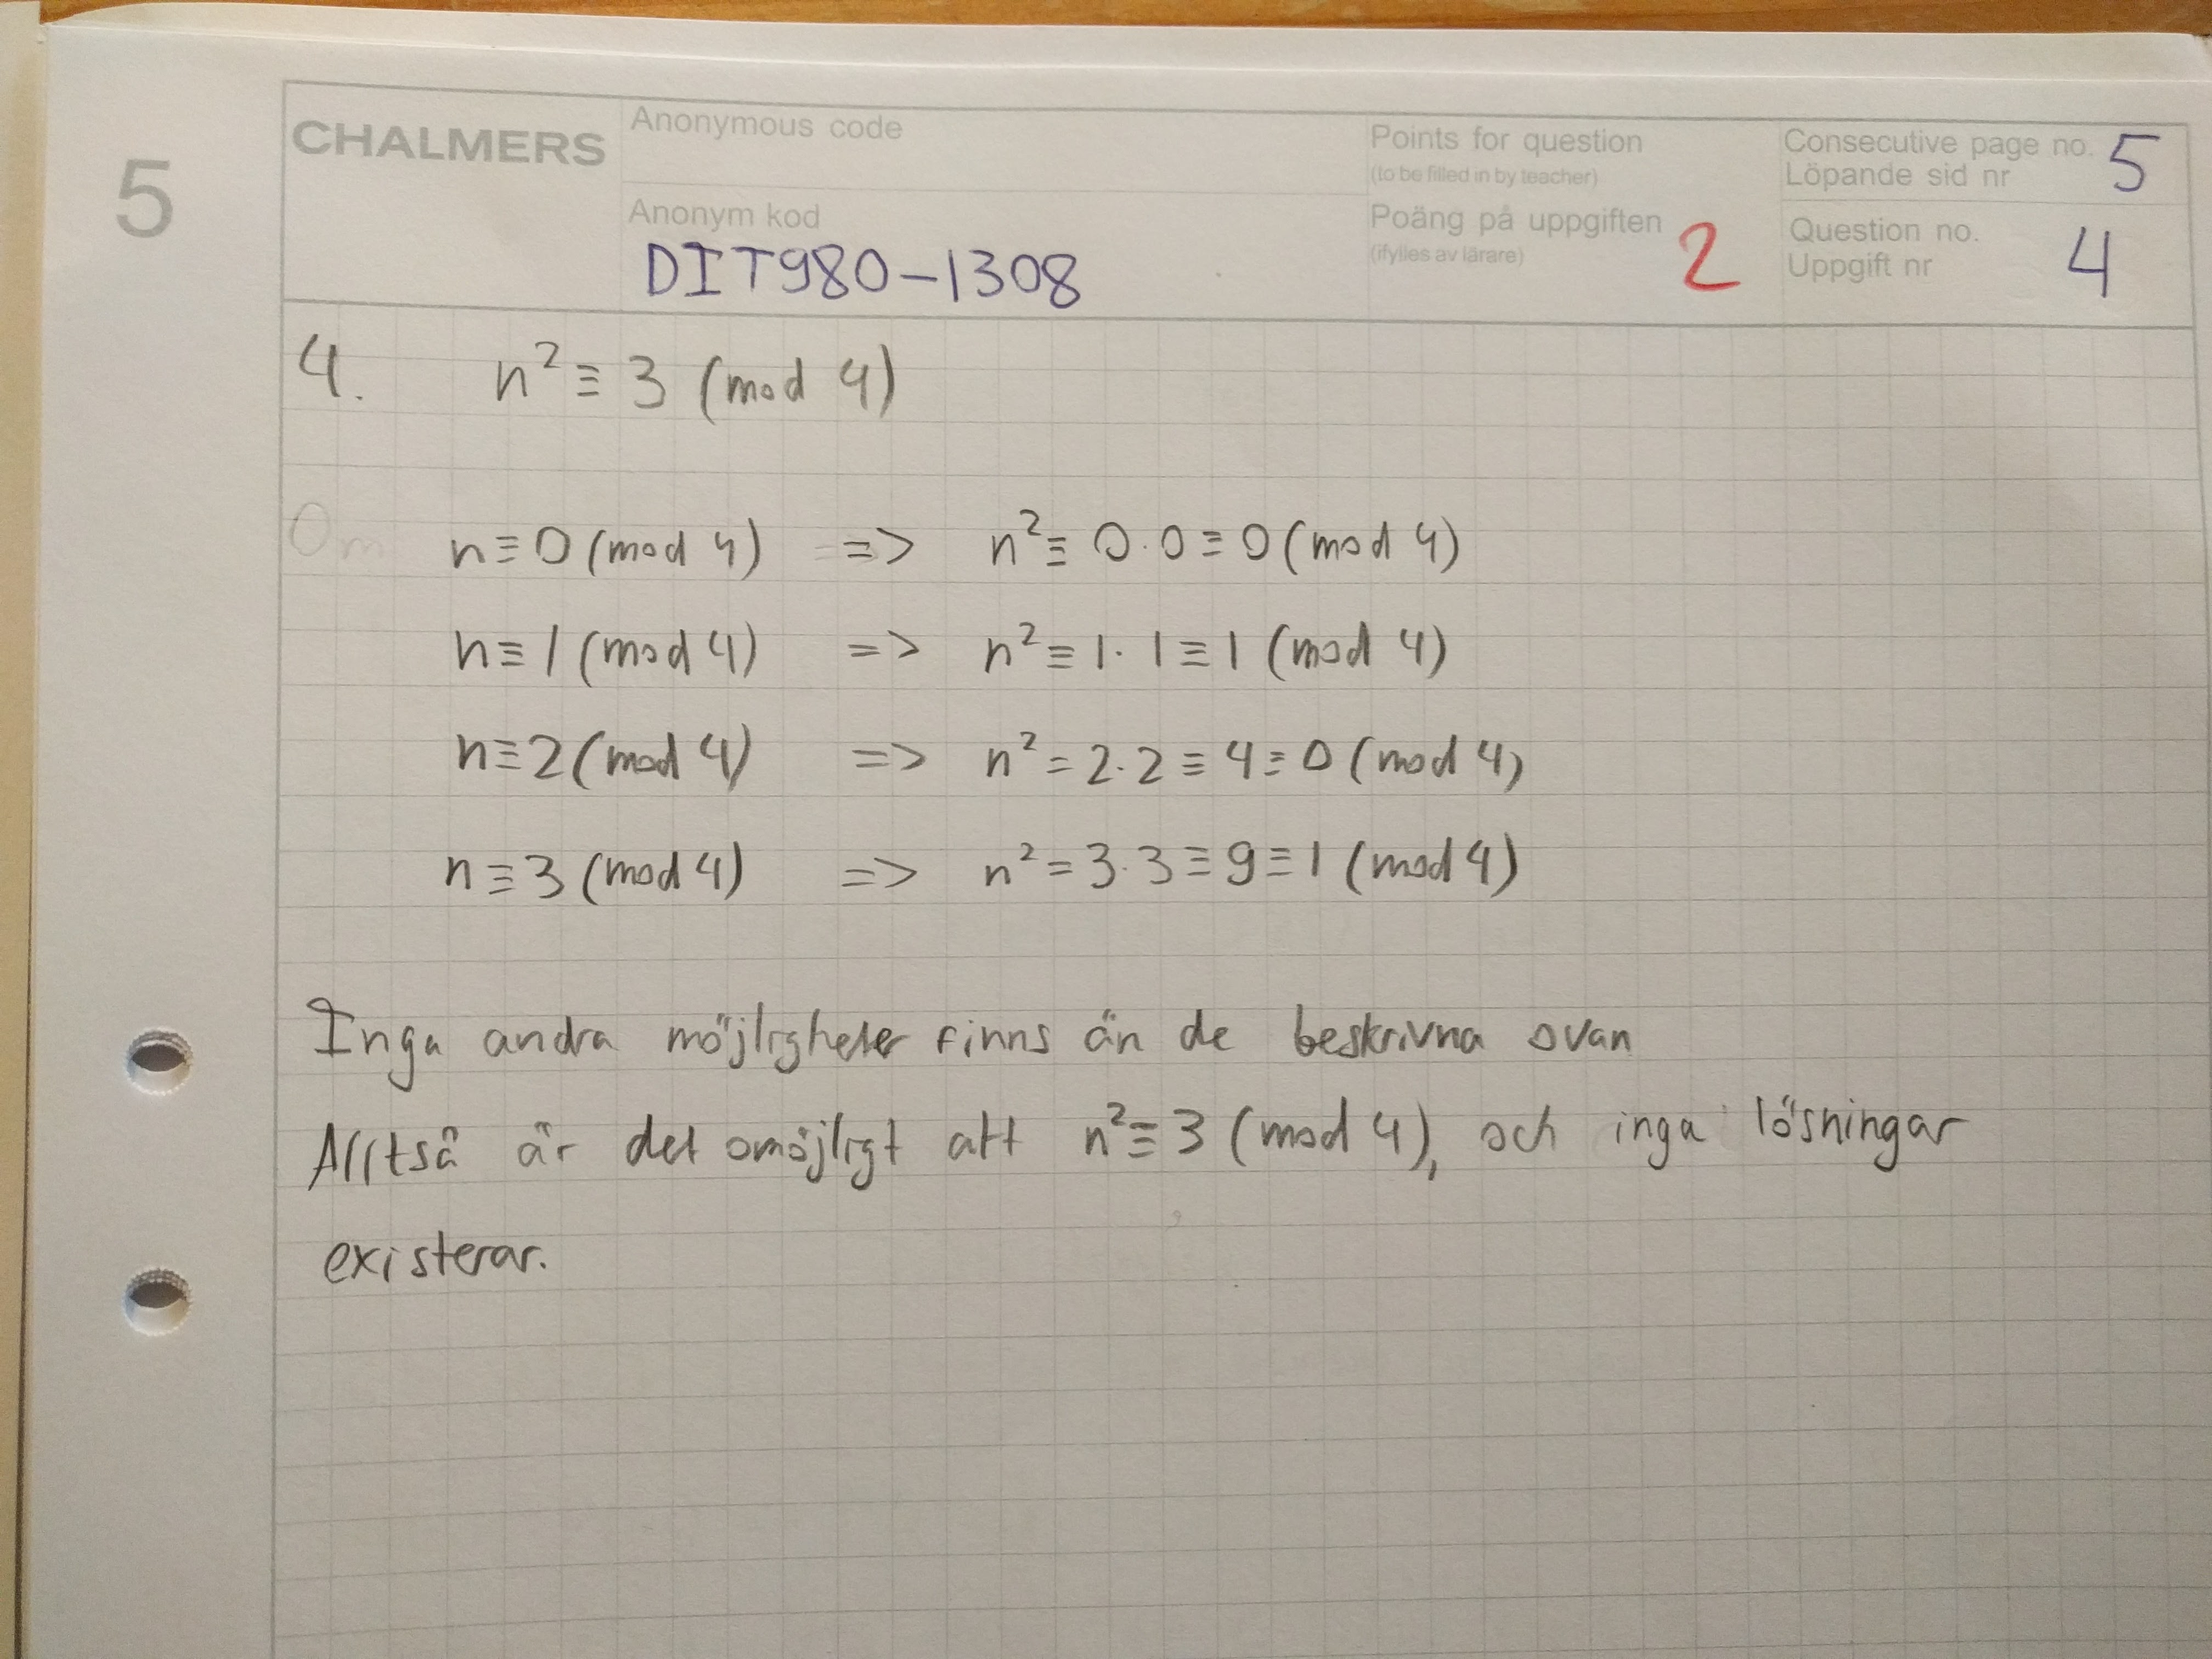 5
CHALMERS
Anonymous code
Anonym kod
DIT980-1308
Points for question
(to be filled in by teacher)
Poäng på uppgiften
(ifylles av lärare)
2
Consecutive page no.
Löpande sid nr
5
Question no.
Uppgift nr
4
4. n² ≡ 3 (mod 4)
Om n ≡ 0 (mod 4) => n² ≡ 0·0 ≡ 0 (mod 4)
n ≡ 1 (mod 4) => n² ≡ 1·1 ≡ 1 (mod 4)
n ≡ 2 (mod 4) => n² = 2·2 ≡ 4 ≡ 0 (mod 4)
n ≡ 3 (mod 4) => n² = 3·3 ≡ 9 ≡ 1 (mod 4)
Inga andra möjligheter finns än de beskrivna ovan
Alltså är det omöjligt att n² ≡ 3 (mod 4), och inga lösningar
existerar.